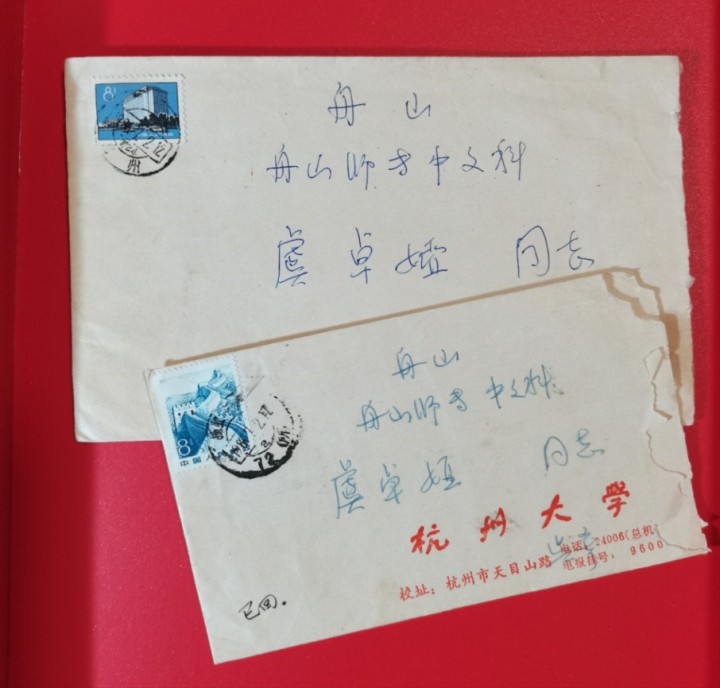 8
舟山
舟山师专中文科
虞卓娅 同志
舟山
舟山师专中文科
虞卓娅 同志
8
中国人
72
杭州大学
电话：24006（总机
电报挂号：9600
校址：杭州市天目山路
已回.